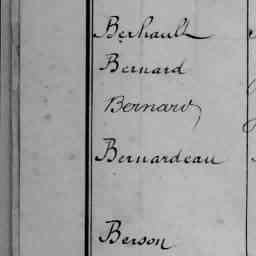 Berhault
Bernard
Bernard
Bernardeau
Berson